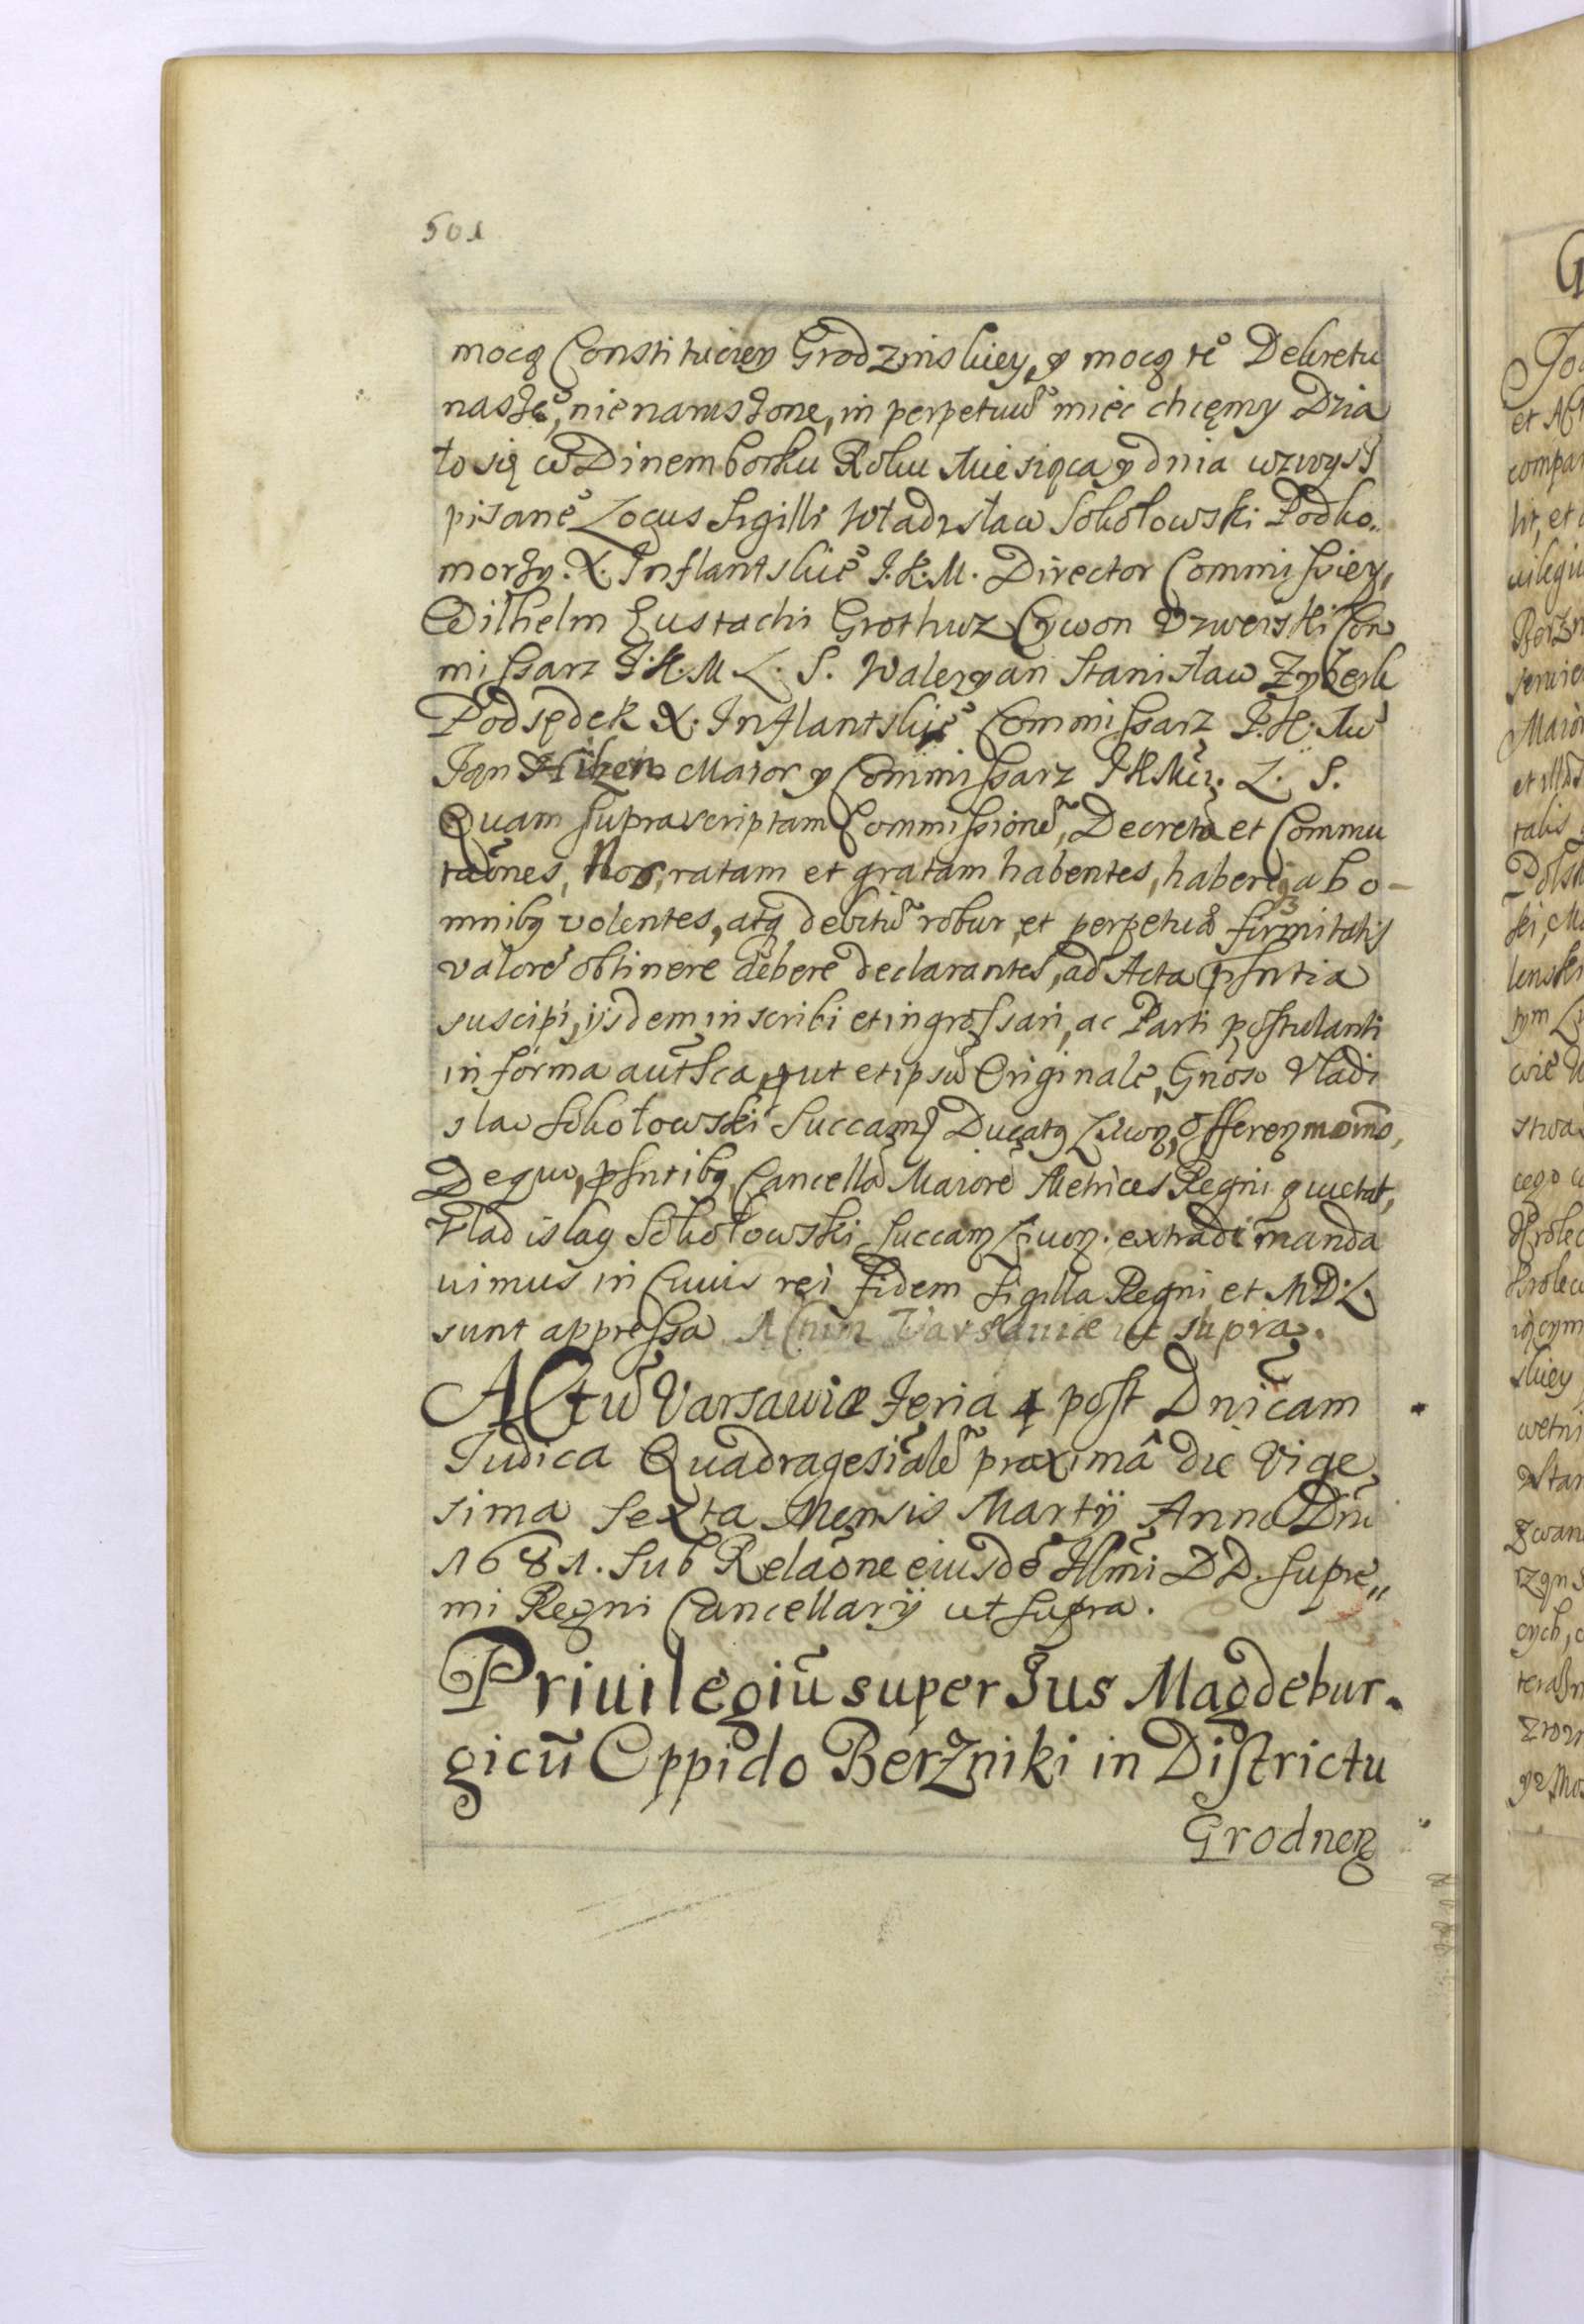 501
mocą Constituciey Grodzinskiey, y mocą te͠o Dekretu
nasze͠o, nienaruszone, in perpetuu͠ miec chcęmy Dzia
ło się w Dinemborku Roku Miesiąca y dnia wzwysz
pisane͠o Locus Sigilli Władysław Sokołowski Podko.
morzy. X. Inflantskie͠o J.K.M. Director Commissiey,
Wilhelm Eustachi Grothuz Cywon Com
missarz J.K.M L. S. Waleryan Stanisław Zyberk
Podsędek X. Inflantskie͠o Commissarz J.K.M
Jan Maior y Commissarz JKMci. L. S.
Quam suprascriptam Commissione͠, Decreta et Commu
tao͠nes, Nos, ratam et gratam habentes, haberiq ab o-
mnibq volentes, atq debitu͠ robur, et perpetuæ firmitatis
valore͠ obtinere debere declarantes, ad Acta p͠sntia
suscipi, ijsdem inscribi et ingrossari, ac Parti postulanti
in forma aut͠tca, put et ipsu͠ Originale, Gno͠so Vladi
slao Sokołowski Succam͠ Ducatq Livon, offeren
De quo, p͠sntibq, Cancella͠ Maiore͠ Metrices Regni quietat,
Vladislaq Sokołowski Succam Livon. extradi manda
uimus in Cuius rei fidem Sigilla Regni et M.D.L.
sunt appressa Actum Varsauiæ ut supra.
Actu͠ Varsauiæ Feria 4 post Dni͠cam
Judica Quadragesiale͠ proximâ die Vige
sima Sexta Mensis Martÿ Anno Dni͠
1681. Sub Relao͠ne eiusde͠ Illm͠i DD. Supre„
mi Regni Cancellarÿ ut supra.
Priuilegiu͠ super Jus Magdebur.
gicu͠ Oppido Berzniki in Districtu
Grodnen